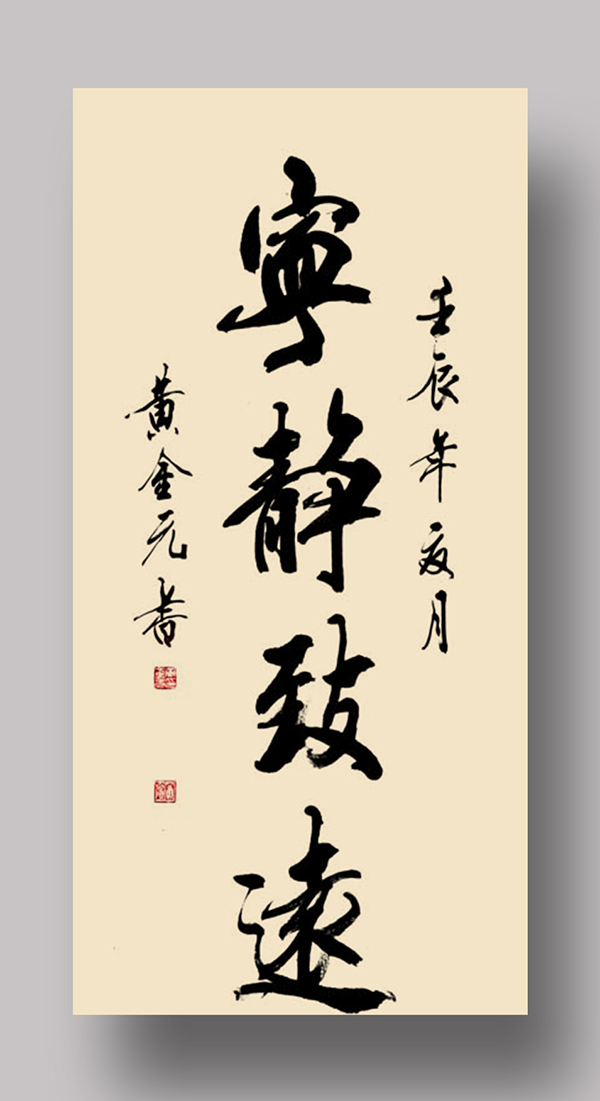 壬辰年夏月
寧靜致遠
黄金元書